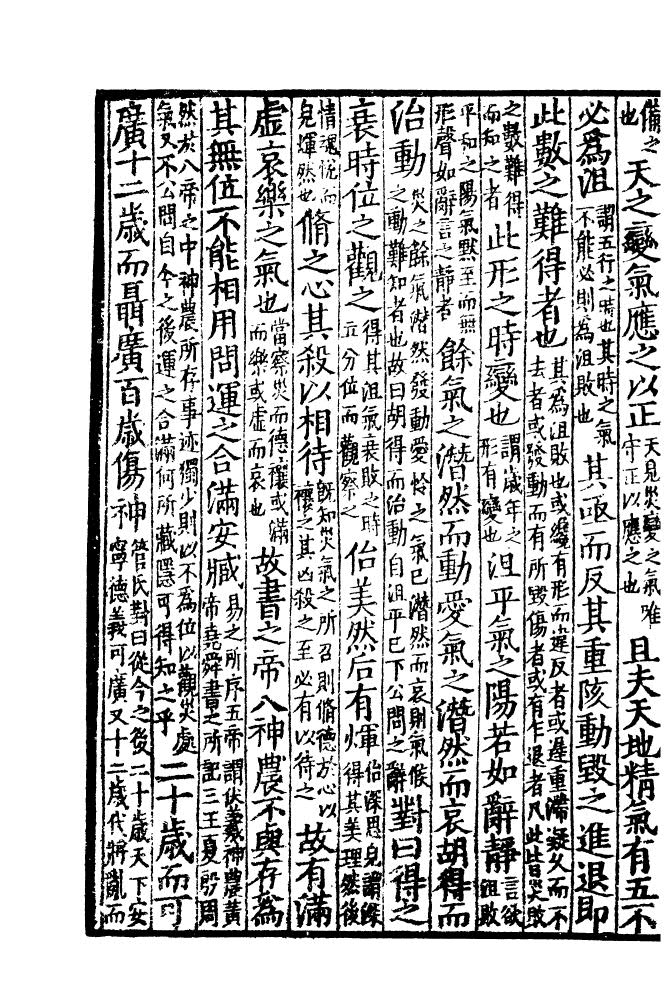 備之也天之變氣應之以正天見災變之氣唯守正以應之也且夫天地精氣有五不
必為沮謂五行之時也其時之氣不能必則為沮敗也其亟而反其重陔動毀之進退即
此數之難得者也其為沮敗也或纔有形而違反者或遲重滯凝久而不去者或發動而有所毀傷者或有作退者凡此皆災敗
之數難得而知之者此形之時變也謂歲年之形有變也沮平氣之陽若如辭靜言欲沮敗
平和之陽氣默至而無形聲如辭言之靜者餘氣之潛然而動愛氣之潛然而哀胡得而
治動災之餘氣潛然發動愛怜之氣已潛然而哀則氣候之動難知者也故曰胡得而治動自沮平已下公問之辭對曰得之
衰時位之觀之得其沮氣衰敗之時立分位而觀察之佁美然后有煇佁深思皃謂深得其美理然後
情魂悅而皃煇然也脩之心其殺以相待既知災氣之所召則脩德於心以禳之其凶殺之至必有以待之故有滿
虛哀樂之氣也當察災而德禳或滿而樂或虛而哀也故書之帝八神農不與存為
其無位不能相用問運之合滿安臧易之所序五帝謂伏羲神農黃帝堯舜書之所記三王夏殷周
然於八帝之中神農所存事迹獨少則以不為位以觀災處氣又不公問自今之後運之合滿何所藏隱可得知之乎二十歲而可
廣十二歲而聶廣百歲傷神管氏對曰從今之後二十歲天下安寧德義可廣又十二歲代將亂而